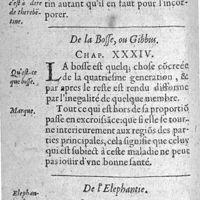 c'est à dire
de therebē-
tine.
tin autant qu'il en faut pour l'incor-
porer.
De la Bosse, ou Gibbus.
CHAP. XXXIV.
Qu'est-ce
que bosse.
LA bosse est quelq; chose cõcreée
de la quatriesme generation, &
par apres le reste est rendu difforme
par l'inegalité de quelque membre.
Marque.
Tout ce qui est hors de sa proportiõ
passe en excroissãce: que si elle se tour-
ne interieurement aux regiõs des par-
ties principales, cela signifie que celuy
qui est subiect à ceste maladie ne peut
pas iouir d'vne bonne santé.
De l'Elephantie.
Elephan-